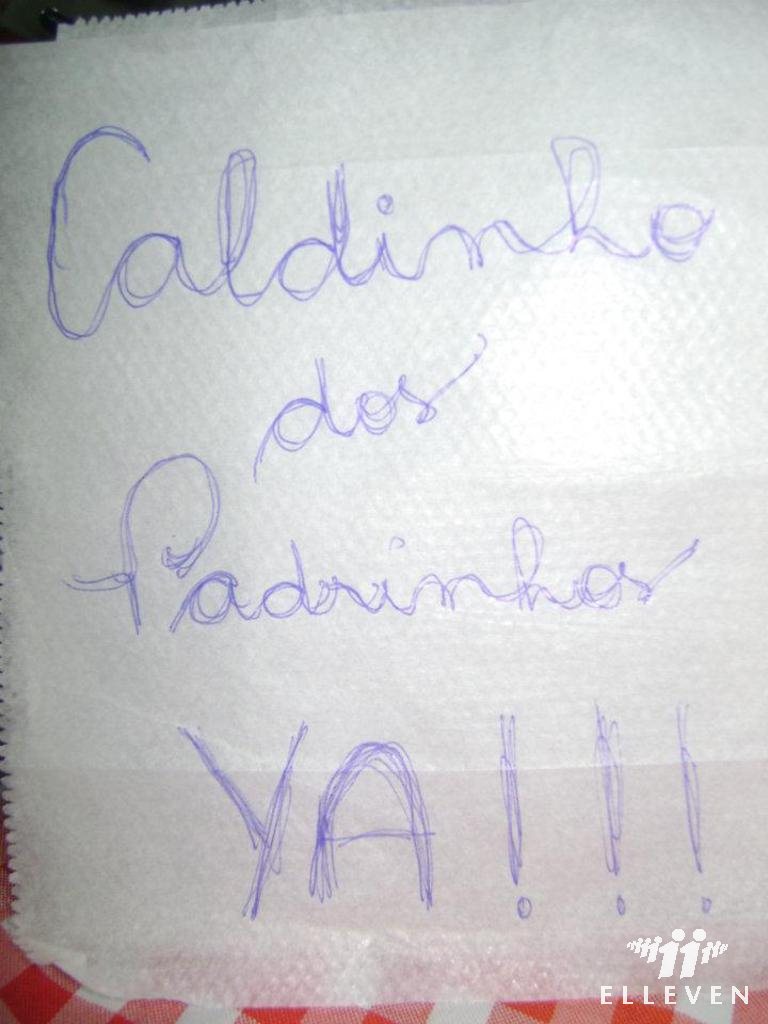 Caldinho
dos
Padrinhos
YA!!!
ELLEVEN